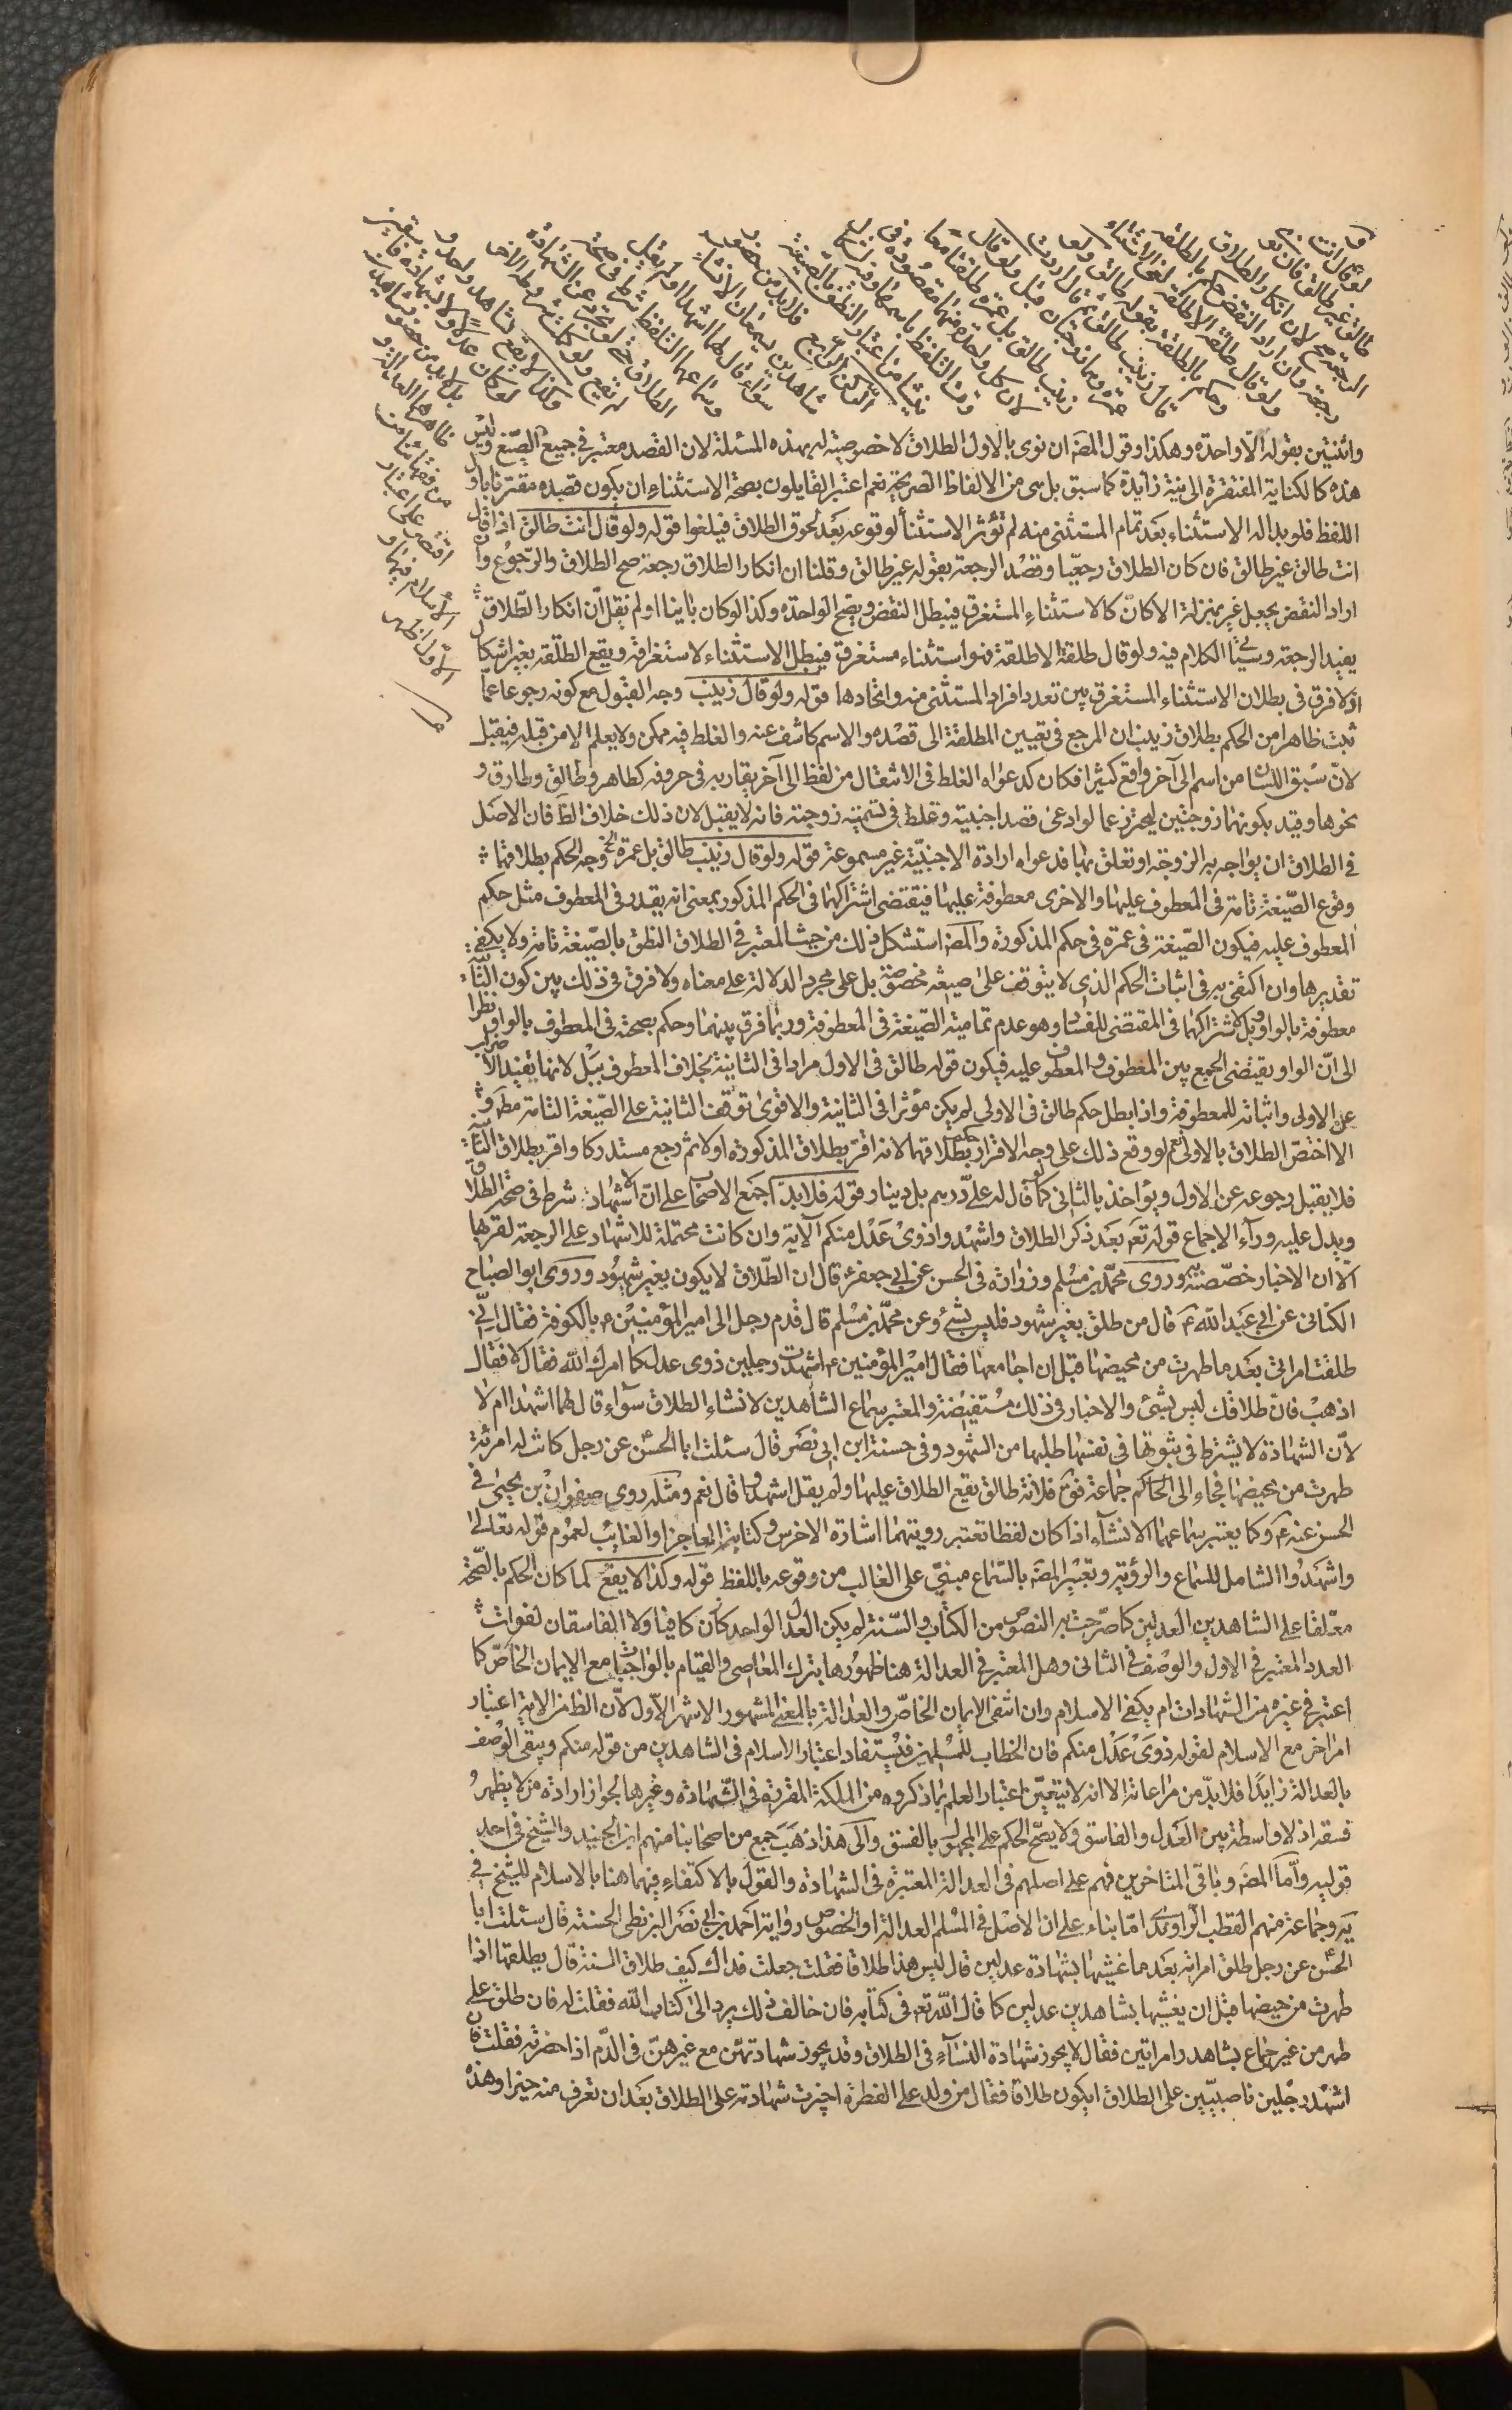 لو قال انت
طالق غير طالق فان نوى
الرجعة صح لان انكار الطلاق
رجعة وان اراد النقض حكم بالطلقة
ولو قال طلقة الا طلقة لغى الاستثناء
وحكم بالطلقة بقوله طالق ولو
قال زينب طالق ثم قال اردت
عمرة وهما زوجتان قبل ولو قال
زينب طالق بل عمرة طلقتا معا
لان كل واحدة منهما مقصودة في
وقت التلفظ باسمها وفيه اشكال
ينشأ من اعتبار النطق بالصيغة
الركن الرابع
فلا بد من حضور
شاهدين يسمعان الانشاء
سواء قال لهما اشهدا او لم يقل
وسماعهما التلفظ شرط في صحة
الطلاق حتى لو تجرد عن الشهادة
لم يقع ولو كملت شروطه الاخر
وكذا لا يقع بشاهد واحد و
لو كان عدلا ولا بشهادة فاسقين
بل لا بد من حضور شاهدين
ظاهرهما العدالة و
من فقهائنا من
اقتصر على اعتبار
الاسلام فيهما و
الاول اظهر
واثنتين بقوله الا واحدة وهكذا وقول المصَ ان نوى بالاول الطلاق لا خصوصية له بهذه المسئلة لان القصد معتبر في جميع الصيغ وليس
هذه كالكناية المفتقرة الى نية زايدة كما سبق بل هى من الالفاظ الصريحة نعم اعتبر القايلون بصحة الاستثناء ان يكون قصده مقترنا باول
اللفظ فلو بدا له الاستثناء بعد تمام المستثنى منه لم تؤثر الاستثنا لوقوعه بعد لحوق الطلاق فيلغوا قوله ولو قال انت طالق اذا قال
انت طالق غير طالق فان كان الطلاق رجعيا وقصد الرجعة بقوله غير طالق وقلنا ان انكار الطلاق رجعة صح الطلاق والرجوع وان
اراد النقض بجعل غير بمنزلة الا كان كالاستثناء المستغرق فيبطل النقض ويصح الواحدة وكذا لو كان باينا او لم نقل ان انكار الطلاق
يفيد الرجعة وسيأتى الكلام فيه ولو قال طلقة الا طلقة فهو استثناء مستغرق فيبطل الاستثناء لاستغراقه ويقع الطلقة بغير اشكال
اذ لا فرق في بطلان الاستثناء المستغرق بين تعدد افراد المستثنى منه واتحادها قوله ولو قال زينب وجه القبول مع كونه رجوعا عما
ثبت ظاهرا من الحكم بطلاق زينب ان المرجع في تعيين المطلقة الى قصده والاسم كاشف عنه والغلط فيه ممكن ولا يعلم الا من قبله فيقبل
لان سبق اللسان من اسم الى آخر واقع كثيرا فكان كدعواه الغلط في الانتقال من لفظ الى آخر يقاربه في حروفه كطاهر وطالق وطارق و
نحوها وقيد بكونهما زوجتين ليحترز عما لو ادعى قصد اجنبية وغلط في تسمية زوجته فانه لا يقبل لان ذلك خلاف الظَ فان الاصل
في الطلاق ان يواجه به الزوجة او تعلق بها فدعواه ارادة الاجنبية غير مسموعة قوله ولو قال زينب طالق بل عمرة الخ وجه الحكم بطلاقهما
وقوع الصيغة تامة في المعطوف عليها والاخرى معطوفة عليها فيقتضى اشتراكهما في الحكم المذكور بمعنى انه يقدر في المعطوف مثل حكم
المعطوف عليه فيكون الصيغة في عمرة في حكم المذكورة والمصَ استشكل ذلك من حيث المعتبر في الطلاق النطق بالصيغة تامة ولا يكفى
تقديرها وان اكتفى به في اثبات الحكم الذى لا يتوقف على صيغة مخصوصة بل على مجرد الدلالة على معناه ولا فرق في ذلك بين كون الثانية
معطوفة بالواو وبل لاشتراكهما في المقتضى للفساد وهو عدم تمامية الصيغة في المعطوفة وربما فرق بينهما وحكم بصحته في المعطوف بالواو نظرا
الى ان الواو تقتضى الجمع بين المعطوف والمعطوف عليه فيكون قوله طالق في الاول مرادا في الثانية بخلاف المعطوف ببل لانها يفيد الاضراب
عن الاولى واثباته للمعطوفة واذا بطل حكم طالق في الاولى لم يكن مؤثرا في الثانية والاقوى توقف الثانية على الصيغة التامة مطَ و
الا اختص الطلاق بالاولى نعم لو وقع ذلك على وجه الاقرار حكم بطلاقهما لانه اقر بطلاق المذكورة اولا ثم رجع مستدركا واقر بطلاق الثانية
فلا يقبل رجوعه عن الاول ويؤاخذ بالثانى كما لو قال له على درهم بل دينار قوله فلا بد اجمع الاصحاب على ان الاشهاد شرط في صحة الطلاق
ويدل عليه وراء الاجماع قوله تعَ بعد ذكر الطلاق واشهدوا ذوى عدل منكم الآية وان كانت محتملة للاشهاد على الرجعة لقربها
الا ان الاخبار خصصته به وروى محمد بن مسلم وزرارة في الحسن عن ابى جعفرَ قال ان الطلاق لا يكون بغير شهود وروى ابو الصباح
الكنانى عن ابى عبد الله عَ قال من طلق بغير شهود فليس بشئ وعن محمد بن مسلم قال قدم رجل الى امير المؤمنين ع بالكوفة فقال انى
طلقت امراتى بعد ما طهرت من محيضها قبل ان اجامعها فقال امير المؤمنين ع اشهدت رجلين ذوى عدل كما امرك الله فقال لا فقال
اذهب فان طلاقك ليس بشئ والاخبار في ذلك مستفيضة والمعتبر سماع الشاهدين لانشاء الطلاق سواء قال لهما اشهدا ام لا
لان الشهادة لا يشترط في ثبوتها في نفسها طلبها من الشهود وفي حسنة ابن ابى نصر قال سئلت ابا الحسن عن رجل كانت له امرئة
طهرت من محيضها فجاء الى جماعة فقال فلانة طالق يقع الطلاق عليها ولم يقل اشهدوا قال نعم ومثله روى صفوان بن يحيى في
الحسن عنه عَ وكما يعتبر سماعهما الانشاء اذا كان لفظا تعتبر رويتهما اشارة الاخرس وكتابة العاجز او الغايب لعموم قوله تعالى
واشهدوا الشامل للسماع والرؤية وتعبير المصَ بالسماع مبنى على الغالب من وقوعه باللفظ قوله وكذا لا يقع لما كان الحكم بالصحة
معلقا على الشاهدين العدلين كما صرحت به النصوص من الكتاب والسنة لم يكن العدل الواحد كافيا ولا الفاسقان لفوات
العدد المعتبر في الاول والوصف في الثانى وهل المعتبر في العدالة هنا ظهورها بترك المعاصى والقيام بالواجبات مع الايمان الخاص كما
اعتبر في غيره من الشهادات ام يكفى الاسلام وان انتفى الايمان الخاص والعدالة بالمعنى المشهور الاشهر الاول لان الظ من الاية اعتبار
امر اخر مع الاسلام لقوله ذوى عدل منكم فان الخطاب للمسلمين فيستفاد اعتبار الاسلام في الشاهدين من قوله منكم ويبقى الوصف
بالعدالة زايدا فلا بد من مراعاته الا انه لا يتعين اعتبار العلم بما ذكروه من الملكة المقررة في الشهادة وغيرها لجواز ارادة من لا يظهر
فسقه اذ لا واسطة بين العدل والفاسق ولا يصح الحكم على المجهول بالفسق والى هذا ذهب جمع من اصحابنا منهم ابن الجنيد والشيخ في احد
قوليه واما المصَ وباقى المتاخرين فهم على اصلهم في العدالة المعتبرة في الشهادة والقول بالاكتفاء فيهما هنا بالاسلام للشيخ في
يَه وجماعة منهم القطب الراوندى اما بناء على ان الاصل في المسلم العدالة او لخصوص رواية احمد بن ابى نصر البزنطى الحسنة قال سئلت ابا
الحسن عن رجل طلق امراته بعد ما غشيها بشهادة عدلين قال ليس هذا طلاقا فقلت جعلت فداك كيف طلاق السنة قال يطلقها اذا
طهرت من حيضها قبل ان يغشيها بشاهدين عدلين كما قال الله تعَ في كتابه فان خالف ذلك يرد الى كتاب الله فقلت له فان طلق على
طهر من غير جماع بشاهد وامراتين فقال لا يجوز شهادة النساء في الطلاق وقد يجوز شهادتهن مع غيرهن في الدم اذا حضرته فقلت فان
اشهد رجلين ناصبيين على الطلاق ايكون طلاقا فقال من ولد على الفطرة اجيزت شهادته على الطلاق بعد ان تعرف منه خيرا وهذه